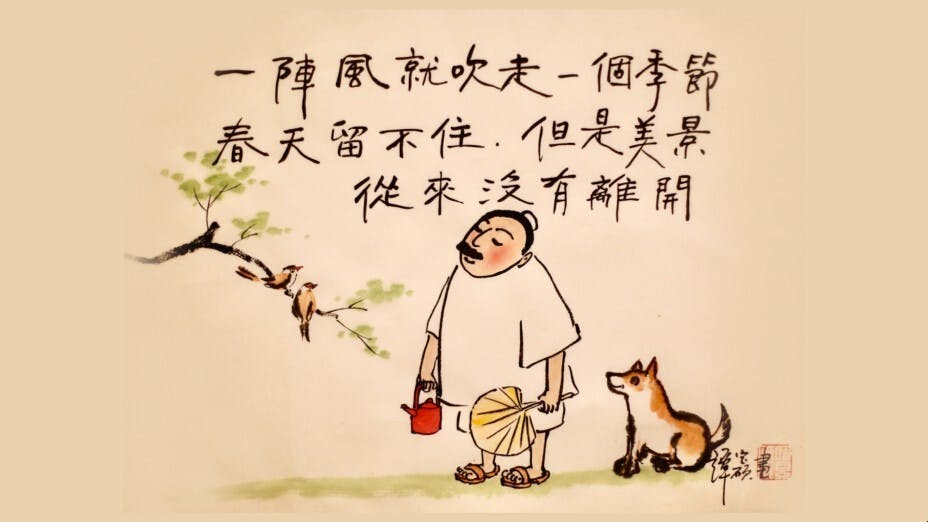 一陣風就吹走一個季節
春天留不住.但是美景
從來沒有離開